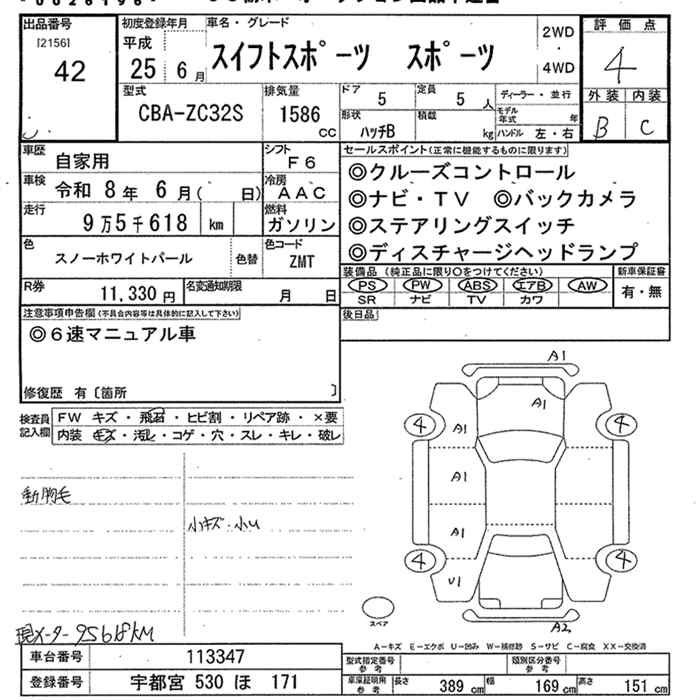 出品番号
[2156]
42
初度登録年月
平成
25 6月
車名・グレード
スイフトスポーツ スポーツ
2WD
4WD
評価点
4
外装 内装
B C
型式
CBA-ZC32S
排気量
1586
cc
ドア
5
定員
5 人
形状
ハッチB
積載
kg
ディーラー・並行
モデル年式 年
ハンドル 左・右
車歴
自家用
シフト
F6
車検
令和 8年 6月( 日)
冷房
AAC
走行
9万5千618 km
燃料
ガソリン
色
スノーホワイトパール
色替
色コード
ZMT
R券
11,330 円
名変通知期限
月 日
セールスポイント(正常に機能するものに限ります)
◎クルーズコントロール
◎ナビ・TV ◎バックカメラ
◎ステアリングスイッチ
◎ディスチャージヘッドランプ
装備品(純正品に限り○をつけてください)
PS PW ABS エアB AW
SR ナビ TV カワ
新車保証書
有・無
注意事項申告欄(不具合内容等は具体的に記入して下さい)
◎6速マニュアル車
修復歴 有〔箇所 〕
後日品
検査員記入欄
FW キズ・飛石・ヒビ割・リペア跡・×要
内装 キズ・汚レ・コゲ・穴・スレ・キレ・破レ
動物毛
小キズ・小U
現メーター95618KM
A1
A1
4 4
A1
A1
4 4
U1
A2
スペア
A-キズ E-エクボ U-凹み W-補修跡 S-サビ C-腐食 XX-交換済
車台番号
113347
登録番号
宇都宮 530 ほ 171
型式指定番号参考
類別区分番号参考
車庫証明用参考
長さ 389 cm
幅 169 cm
高さ 151 cm